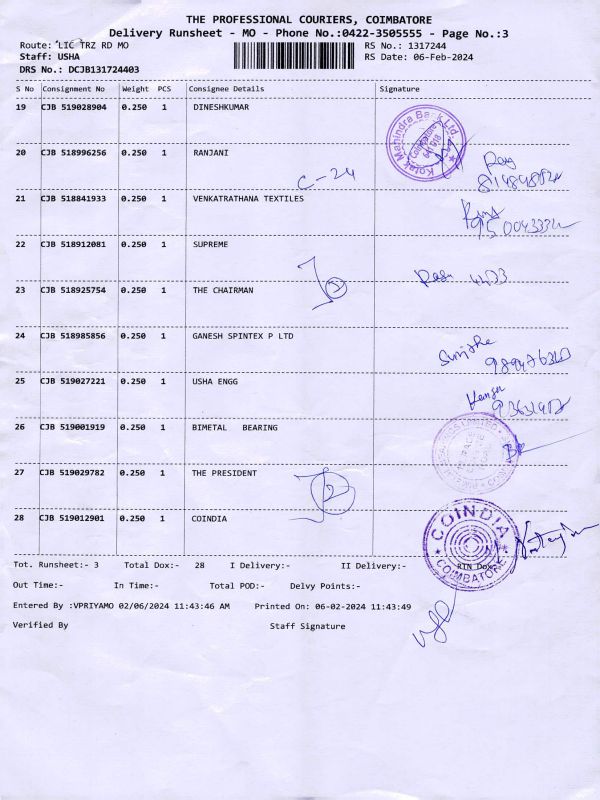 THE PROFESSIONAL COURIERS, COIMBATORE
Delivery Runsheet - MO - Phone No.:0422-3505555 - Page No.:3
Route: LIC TRZ RD MO RS No.: 1317244
Staff: USHA RS Date: 06-Feb-2024
DRS No.: DCJB131724403
S No Consignment No Weight PCS Consignee Details Signature
19 CJB 519028904 0.250 1 DINESHKUMAR
Kotak Mahindra Bank Ltd.
Coimbatore
641 018
20 CJB 518996256 0.250 1 RANJANI
C-24
21 CJB 518841933 0.250 1 VENKATRATHANA TEXTILES
22 CJB 518912081 0.250 1 SUPREME
23 CJB 518925754 0.250 1 THE CHAIRMAN
24 CJB 518985856 0.250 1 GANESH SPINTEX P LTD
25 CJB 519027221 0.250 1 USHA ENGG
26 CJB 519001919 0.250 1 BIMETAL BEARING
27 CJB 519029782 0.250 1 THE PRESIDENT
28 CJB 519012901 0.250 1 COINDIA
COINDIA
COIMBATORE
Tot. Runsheet:- 3 Total Dox:- 28 I Delivery:- II Delivery:- RTN Dox
Out Time:- In Time:- Total POD:- Delvy Points:-
Entered By :VPRIYAMO 02/06/2024 11:43:46 AM Printed On: 06-02-2024 11:43:49
Verified By Staff Signature